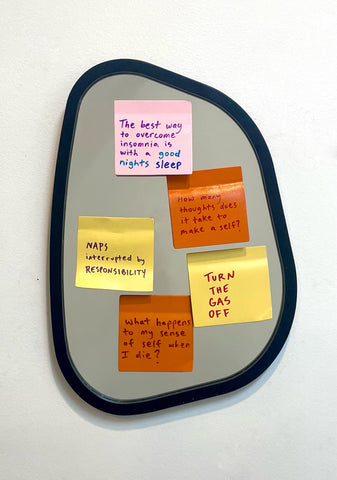 The best way
to overcome
insomnia is
with a good
nights sleep
How many
thoughts does
it take to
make a self?
NAPS
interrupted by
RESPONSIBILITY
TURN
THE
GAS
OFF
What happens
to my sense
of self when
I die?